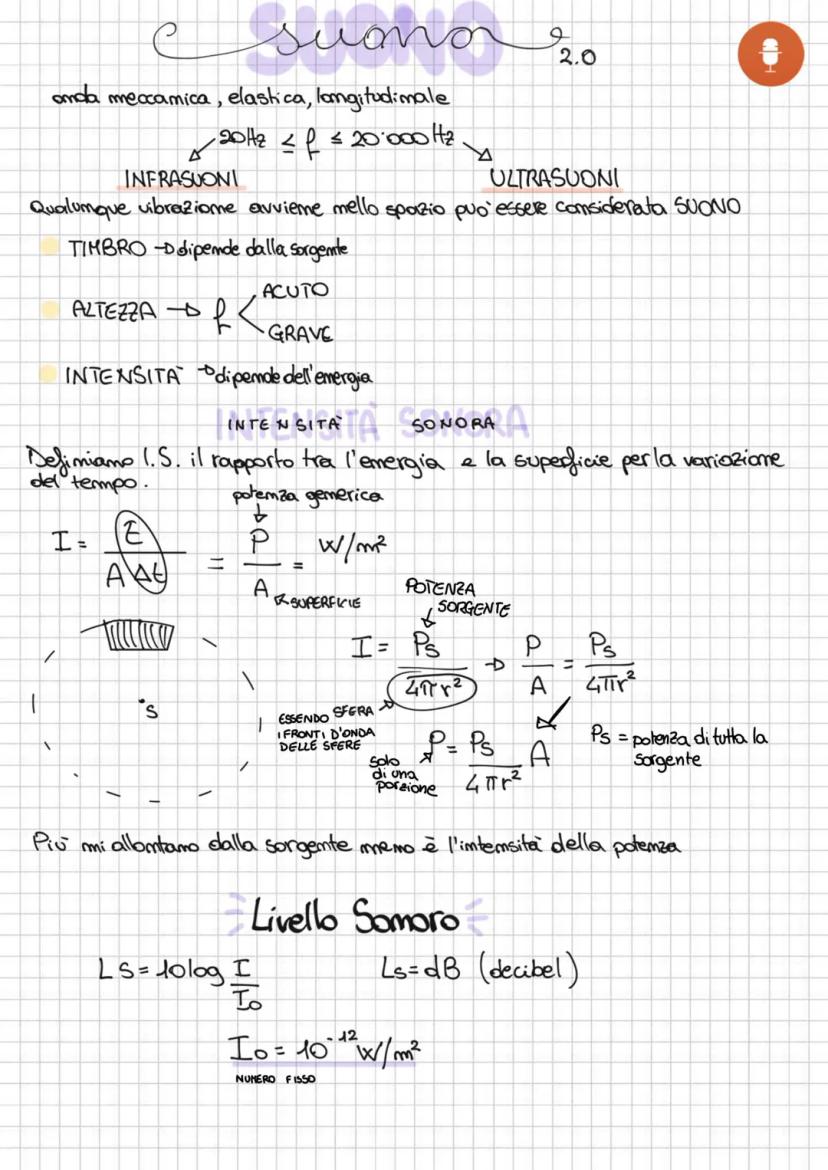 SUONO
suono 2.0
onda meccanica, elastica, longitudinale
20Hz ≤ f ≤ 20'000Hz
INFRASUONI ULTRASUONI
Qualunque vibrazione avviene nello spazio può essere considerata SUONO
TIMBRO → dipende dalla sorgente
ALTEZZA → f < ACUTO
GRAVE
INTENSITÀ → dipende dell'energia
INTENSITÀ SONORA
INTENSITÀ SONORA
Definiamo I.S. il rapporto tra l'energia e la superficie per la variazione
del tempo.
potenza generica
I = E / A Δt = P / A = W/m²
SUPERFICIE
POTENZA
SORGENTE
I = Ps / 4πr² → P / A = Ps / 4πr²
s
ESSENDO SFERA
I FRONTI D'ONDA
DELLE SFERE
solo
di una
porzione
P = Ps / 4πr² A
Ps = potenza di tutta la
sorgente
Più mi allontano dalla sorgente meno è l'intensità della potenza
Livello Sonoro
LS = 10log I / I₀ Ls = dB (decibel)
I₀ = 10⁻¹² W/m²
NUMERO FISSO